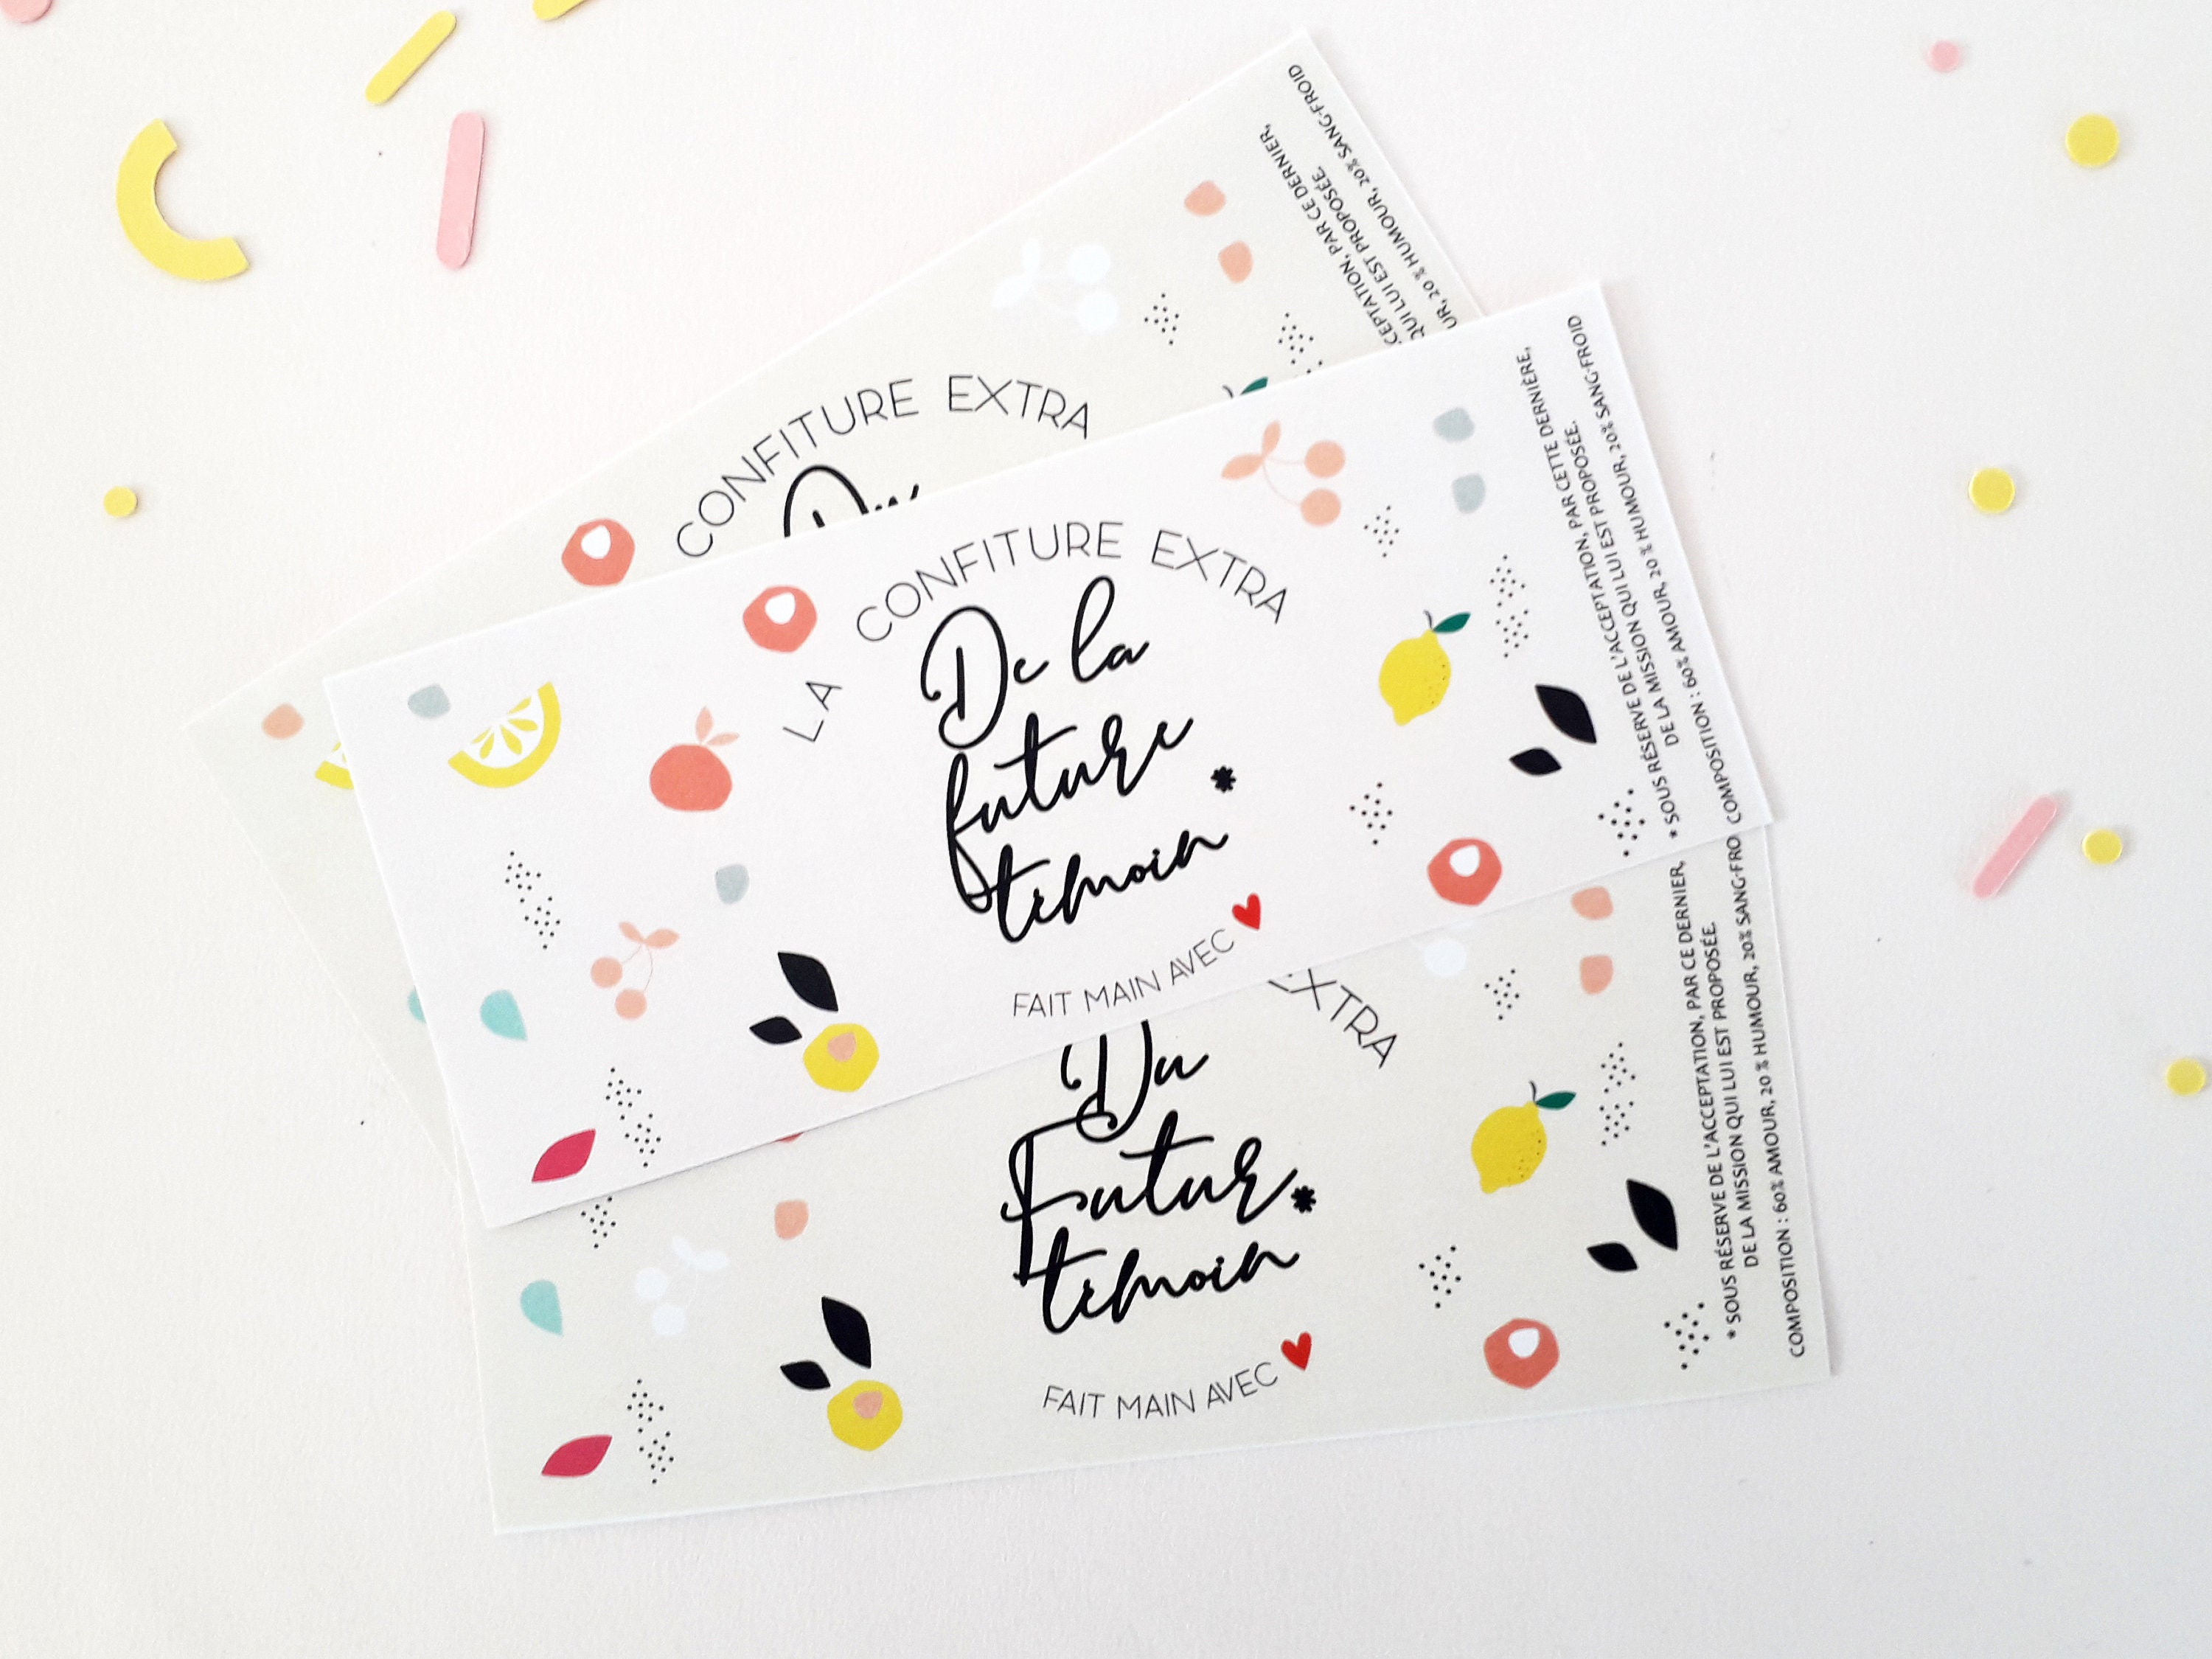 CONFITURE EXTRA
CEPTATION, PAR CE DERNIER,
QUI LUI EST PROPOSÉE.
UR, 20 % HUMOUR, 20% SANG-FROID
LA CONFITURE EXTRA
De la
future
témoin *
FAIT MAIN AVEC
* SOUS RÉSERVE DE L'ACCEPTATION, PAR CETTE DERNIÈRE,
DE LA MISSION QUI LUI EST PROPOSÉE.
COMPOSITION : 60% AMOUR, 20 % HUMOUR, 20% SANG-FROID
EXTRA
Du
Futur *
témoin
FAIT MAIN AVEC
* SOUS RÉSERVE DE L'ACCEPTATION, PAR CE DERNIER,
DE LA MISSION QUI LUI EST PROPOSÉE.
COMPOSITION : 60% AMOUR, 20 % HUMOUR, 20% SANG-FRO